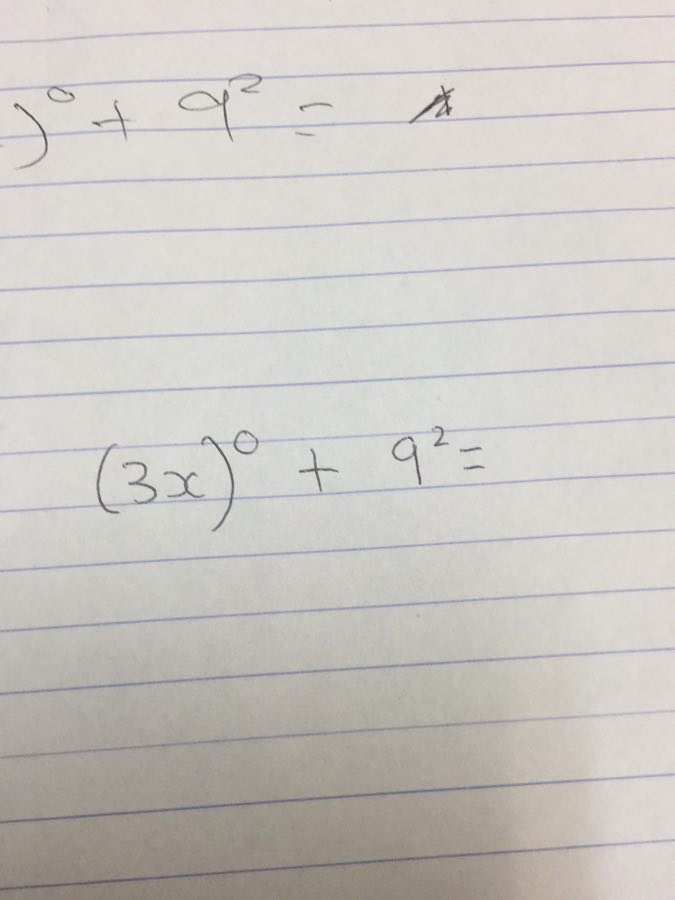 )⁰ + 9² =
(3x)⁰ + 9² =